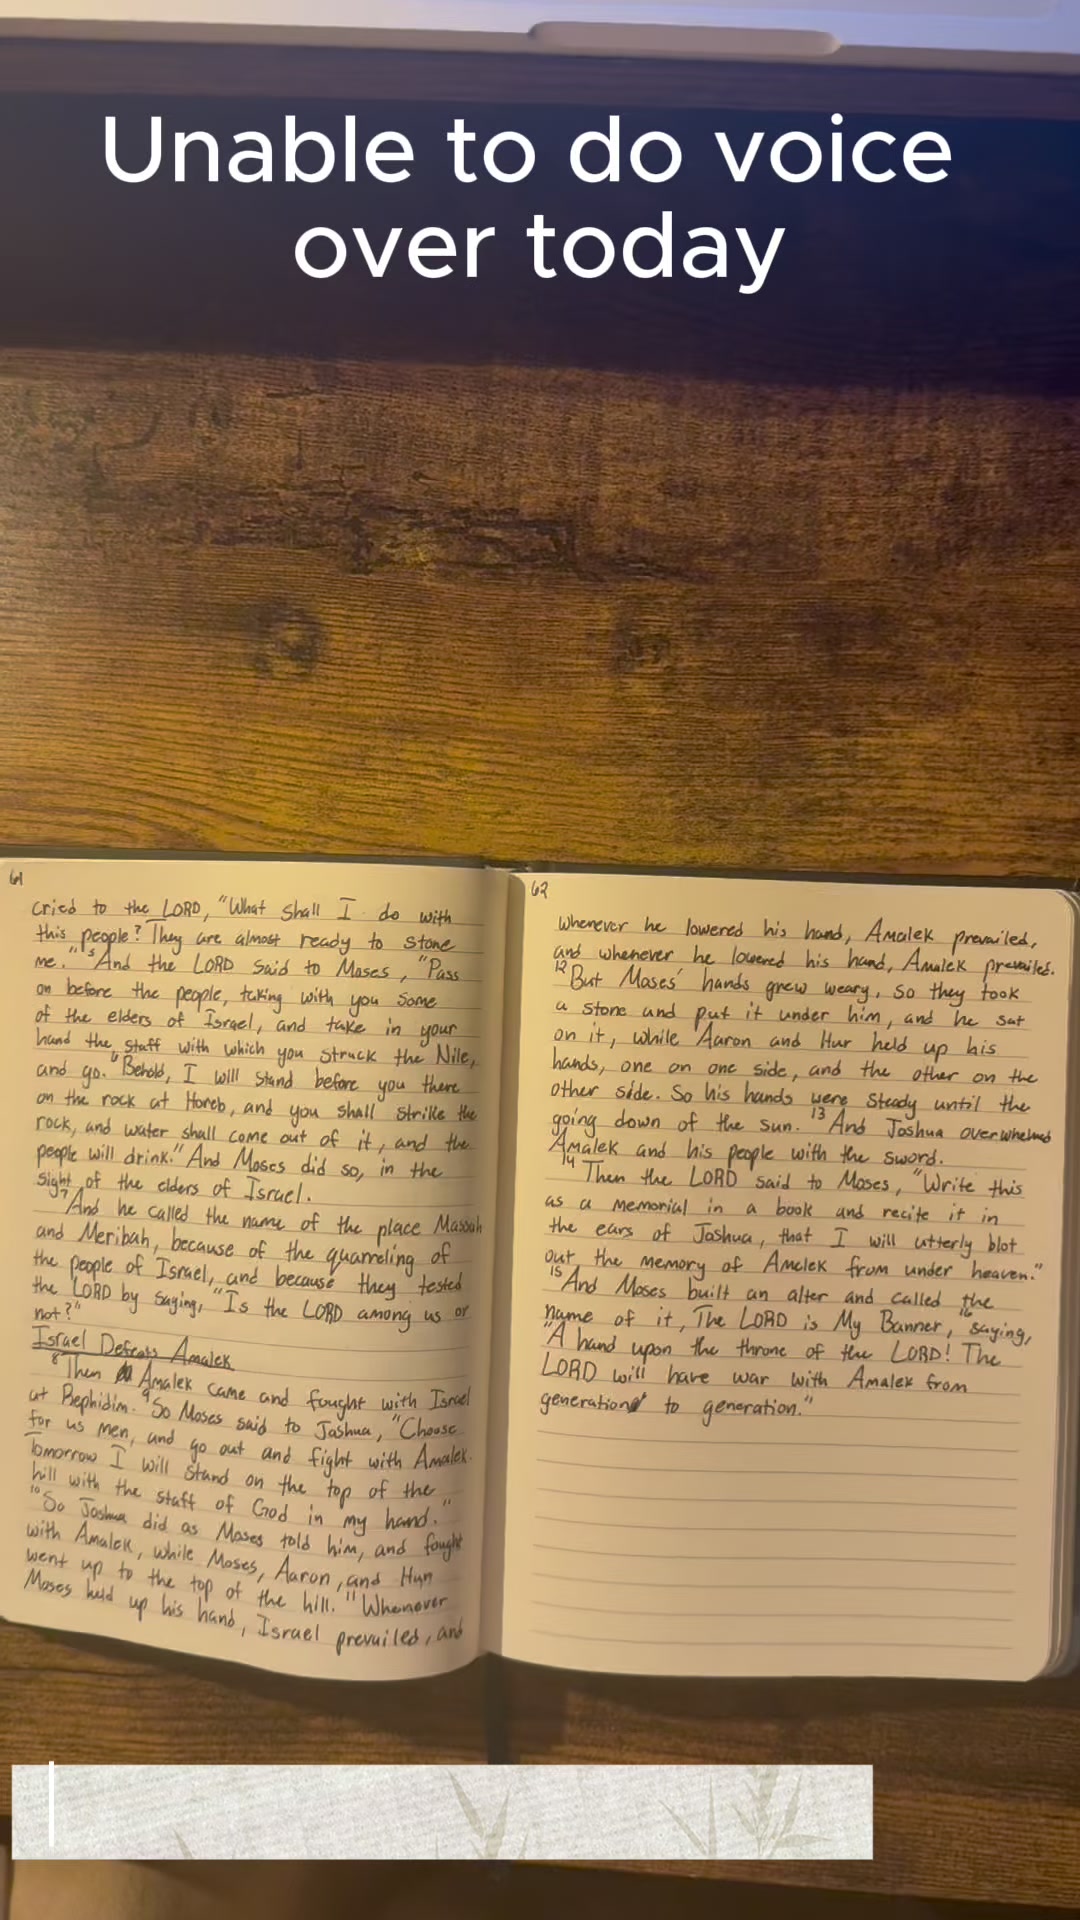 Unable to do voice
over today
61
cried to the LORD, "What shall I do with
this people? They are almost ready to stone
me." 5 And the LORD said to Moses, "Pass
on before the people, taking with you some
of the elders of Israel, and take in your
hand the staff with which you struck the Nile,
and go. 6 Behold, I will stand before you there
on the rock at Horeb, and you shall strike the
rock, and water shall come out of it, and the
people will drink." And Moses did so, in the
sight of the elders of Israel.
7 And he called the name of the place Massah
and Meribah, because of the quarreling of
the people of Israel, and because they tested
the LORD by saying, "Is the LORD among us or
not?"
Israel Defeats Amalek
8 Then Amalek came and fought with Israel
at Rephidim. 9 So Moses said to Joshua, "Choose
for us men, and go out and fight with Amalek.
Tomorrow I will stand on the top of the
hill with the staff of God in my hand."
10 So Joshua did as Moses told him, and fought
with Amalek, while Moses, Aaron, and Hun
went up to the top of the hill. 11 Whenever
Moses held up his hand, Israel prevailed, and
62
Whenever he lowered his hand, Amalek prevailed,
and whenever he lowered his hand, Amalek prevailed.
12 But Moses' hands grew weary, so they took
a stone and put it under him, and he sat
on it, while Aaron and Hur held up his
hands, one on one side, and the other on the
other side. So his hands were steady until the
going down of the sun. 13 And Joshua overwhelmed
Amalek and his people with the sword.
14 Then the LORD said to Moses, "Write this
as a memorial in a book and recite it in
the ears of Joshua, that I will utterly blot
out the memory of Amalek from under heaven."
15 And Moses built an alter and called the
name of it, The LORD is My Banner, 16 saying,
"A hand upon the throne of the LORD! The
LORD will have war with Amalek from
generation to generation."